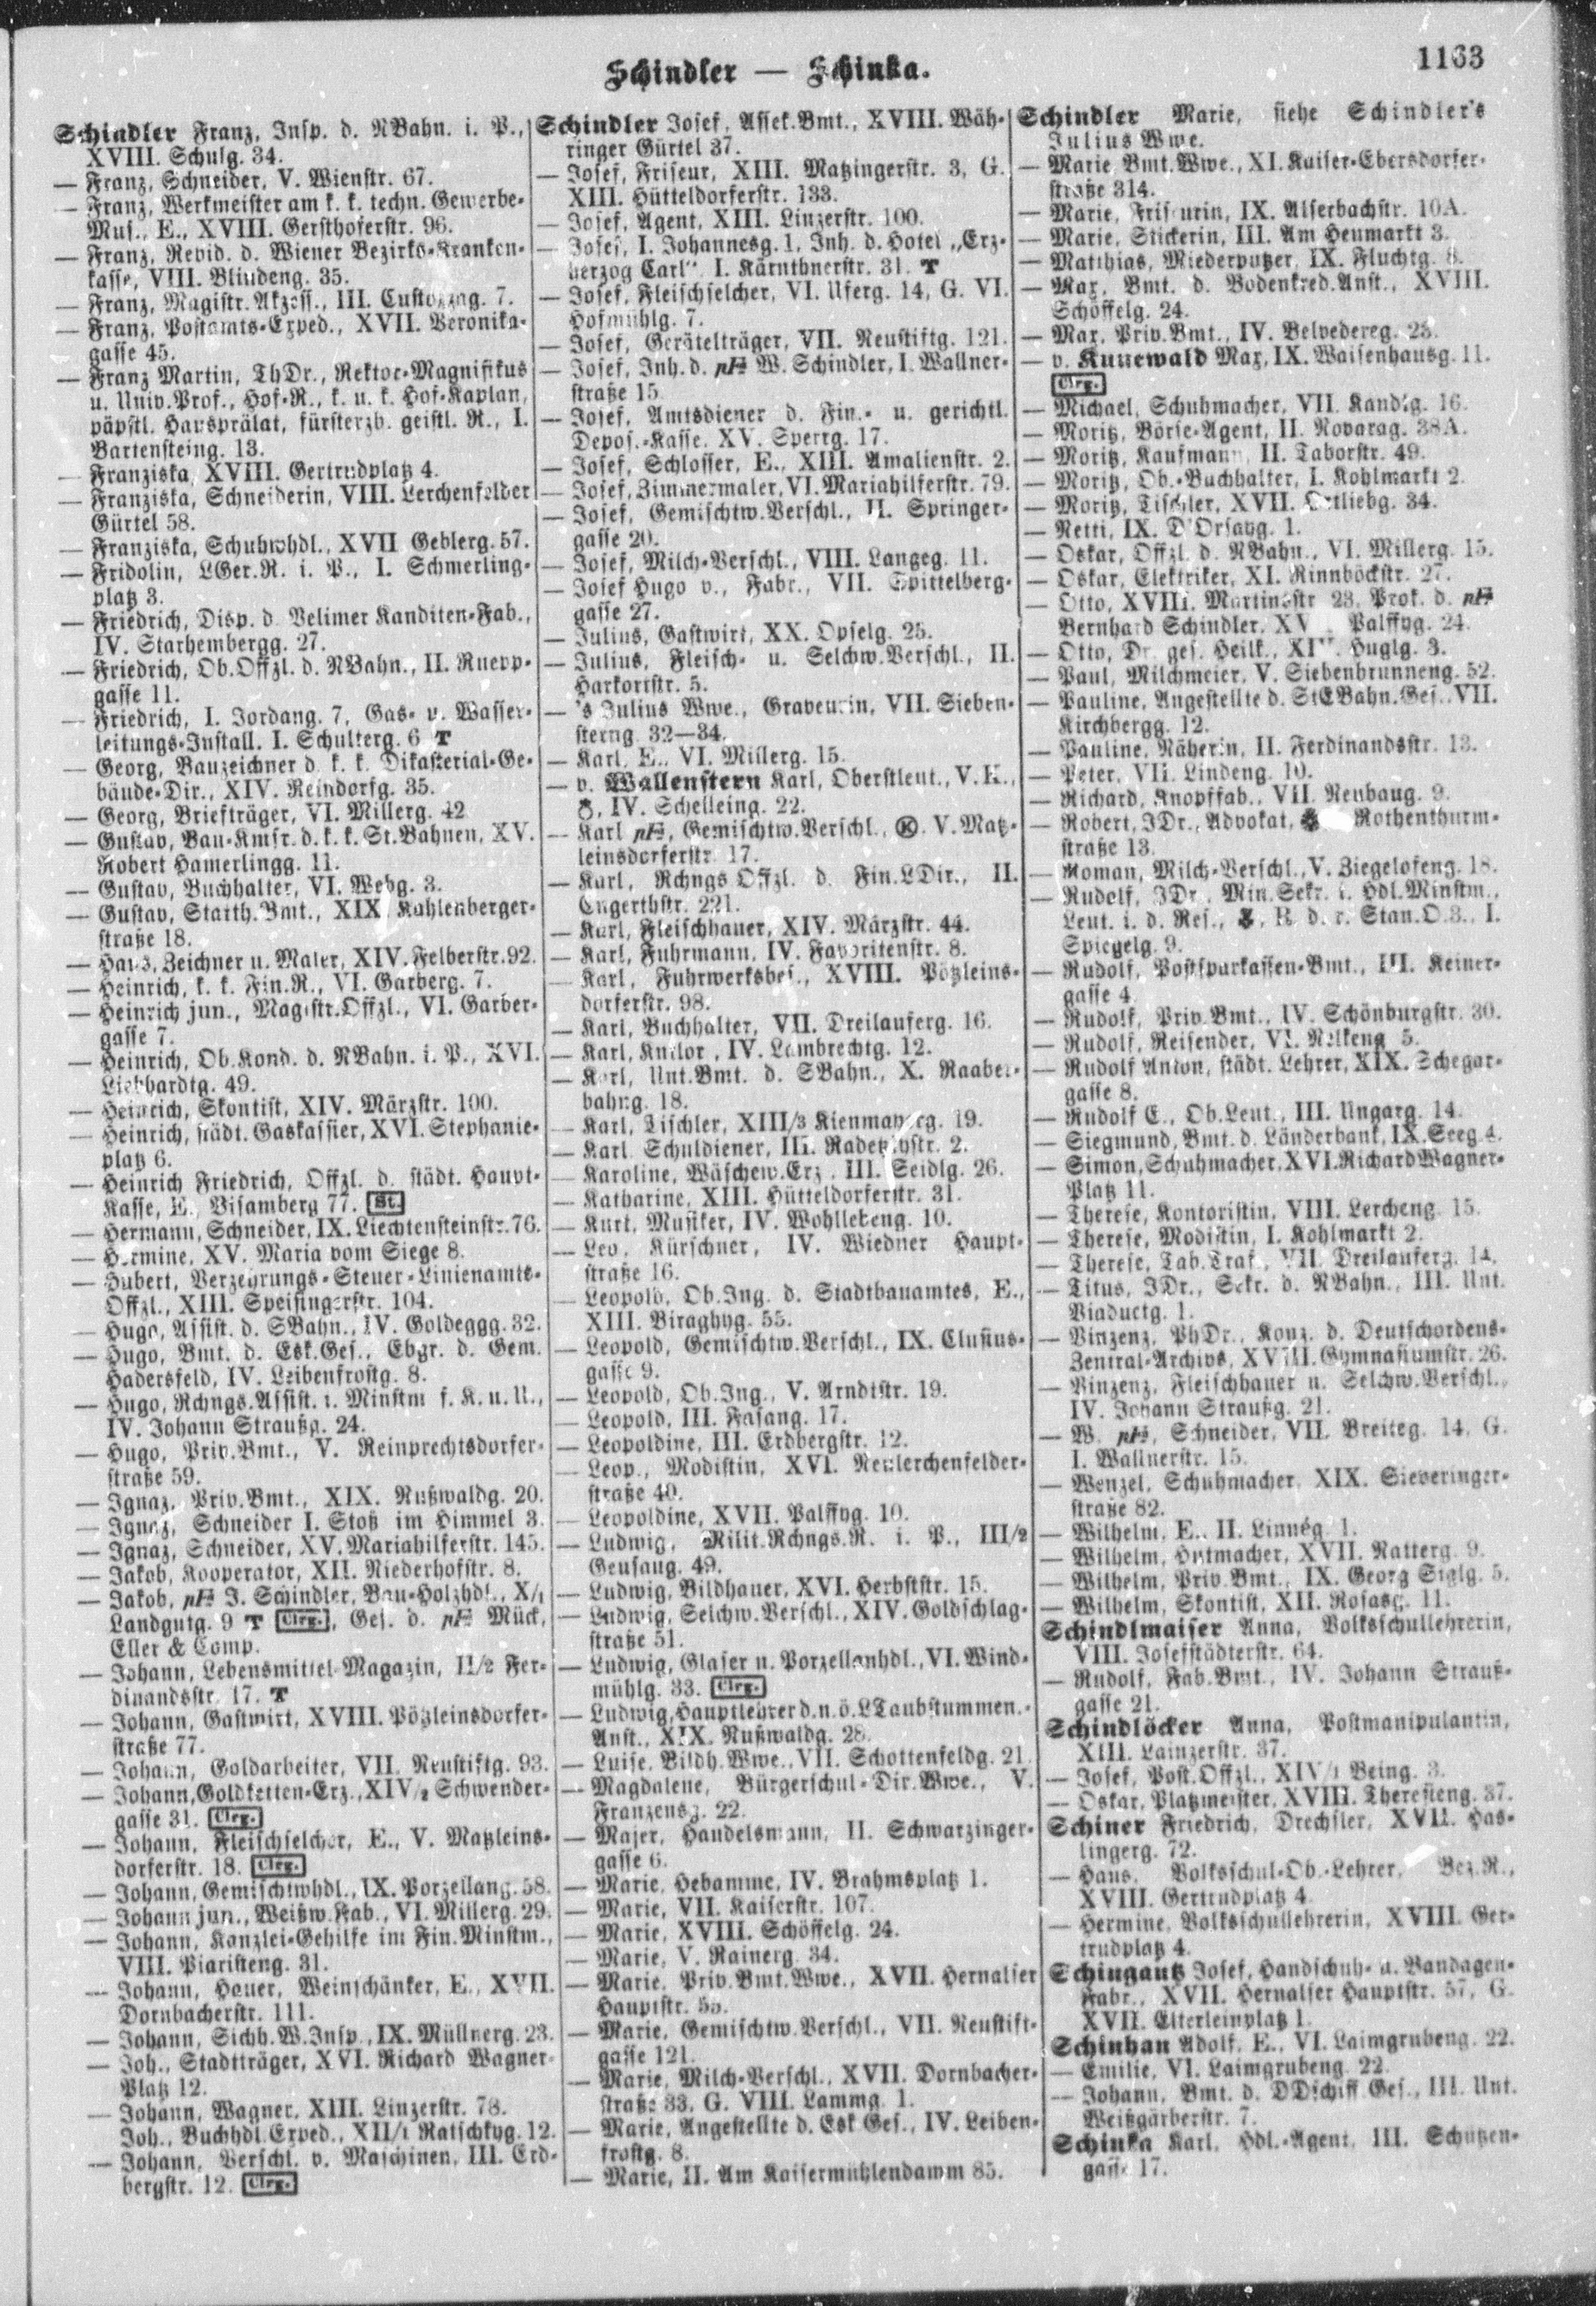 Schindler — Schinka.
1163
Schindler Franz, Insp. d. NBahn. i. P.,
XVIII. Schulg. 34.
— Franz, Schneider, V. Wienstr. 67.
— Franz, Werkmeister am k. k. techn. Gewerbe-
Mus., E., XVIII. Gersthoferstr. 96.
— Franz, Revid. d. Wiener Bezirks-Kranken-
kasse, VIII. Blindeng. 35.
— Franz, Magistr. Akzess., III. Custozzag. 7.
— Franz, Postamts-Exped., XVII. Veronika-
gasse 45.
— Franz Martin, ThDr., Rektor-Magnifikus
u. Univ.Prof., Hof-R., k. u. k. Hof-Kaplan,
päpstl. Hausprälat, fürsterzb. geistl. R., I.
Bartensteing. 13.
— Franziska, XVIII. Gertrudplatz 4.
— Franziska, Schneiderin, VIII. Lerchenfelder
Gürtel 58.
— Franziska, Schuhwhdl., XVII Geblerg. 57.
— Fridolin, LGer.R. i. P., I. Schmerling-
platz 3.
— Friedrich, Disp. d. Velimer Kanditen-Fab.,
IV. Starhembergg. 27.
— Friedrich, Ob.Offzl. d. NBahn., II. Ruepp-
gasse 11.
— Friedrich, I. Jordang. 7, Gas- u. Wasser-
leitungs-Install. I. Schulterg. 6 T
— Georg, Bauzeichner d. k. k. Dikasterial-Ge-
bäude-Dir., XIV. Reindorfg. 35.
— Georg, Briefträger, VI. Millerg. 42
— Gustav, Bau-Kmsr. d. k. k. St.Bahnen, XV.
Robert Hamerlingg. 11.
— Gustav, Buchhalter, VI. Webg. 3.
— Gustav, Statth.Bmt., XIX. Kahlenberger-
straße 18.
— Hans, Zeichner u. Maler, XIV. Felberstr. 92.
— Heinrich, k. k. Fin.R., VI. Garberg. 7.
— Heinrich jun., Magistr.Offzl., VI. Garber-
gasse 7.
— Heinrich, Ob.Kond. d. NBahn. i. P., XVI.
Liebhardtg. 49.
— Heinrich, Skontist, XIV. Märzstr. 100.
— Heinrich, städt. Gaskassier, XVI. Stephanie-
platz 6.
— Heinrich Friedrich, Offzl. d. städt. Haupt-
Kasse, E., Bisamberg 77. St.
— Hermann, Schneider, IX. Liechtensteinstr. 76.
— Hermine, XV. Maria vom Siege 8.
— Hubert, Verzehrungs-Steuer-Linienamts-
Offzl., XIII. Speisingerstr. 104.
— Hugo, Assist. d. SBahn., IV. Goldeggg. 32.
— Hugo, Bmt. d. Esk.Ges., Ebgr. d. Gem.
Hadersfeld, IV. Leibenfrostg. 8.
— Hugo, Rchngs.Assist. i. Minstm f. K. u. U.,
IV. Johann Straußg. 24.
— Hugo, Priv.Bmt., V. Reinprechtsdorfer-
straße 59.
— Ignaz, Priv.Bmt., XIX. Nußwaldg. 20.
— Ignaz, Schneider I. Stoß im Himmel 3.
— Ignaz, Schneider, XV. Mariahilferstr. 145.
— Jakob, Kooperator, XII. Niederhofstr. 8.
— Jakob, J. Schindler, Bau-Holzhdl., X/1
Landgutg. 9 T Clrg., Ges. d. Mück,
Eller & Comp.
— Johann, Lebensmittel-Magazin, II/2 Fer-
dinandsstr. 17. T
— Johann, Gastwirt, XVIII. Pötzleinsdorfer-
straße 77.
— Johann, Goldarbeiter, VII. Neustiftg. 93.
— Johann, Goldketten-Erz., XIV/2 Schwender-
gasse 31. Clrg.
— Johann, Fleischselcher, E., V. Matzleins-
dorferstr. 18. Clrg.
— Johann, Gemischtwhdl., IX. Porzellang. 58.
— Johann jun., Weißw.Fab., VI. Millerg. 29.
— Johann, Kanzlei-Gehilfe im Fin.Minstm.,
VIII. Piaristeng. 31.
— Johann, Hauer, Weinschänker, E., XVII.
Dornbacherstr. 111.
— Johann, Sichh.W.Insp., IX. Müllnerg. 23.
— Joh., Stadtträger, XVI. Richard Wagner-
Platz 12.
— Johann, Wagner, XIII. Linzerstr. 78.
Joh., Buchhdl.Exped., XII/1 Ratschkyg. 12.
— Johann, Verschl. v. Maschinen, III. Erd-
bergstr. 12. Clrg.
Schindler Josef, Assek.Bmt., XVIII. Wäh-
ringer Gürtel 37.
— Josef, Friseur, XIII. Matzingerstr. 3, G.
XIII. Hütteldorferstr. 133.
— Josef, Agent, XIII. Linzerstr. 100.
— Josef, I. Johannesg. 1, Inh. d. Hotel „Erz-
herzog Carl“, I. Kärnthnerstr. 31. T
— Josef, Fleischselcher, VI. Uferg. 14, G. VI.
Hofmühlg. 7.
— Josef, Geräteträger, VII. Neustiftg. 121.
— Josef, Inh. d. W. Schindler, I. Wallner-
straße 15
— Josef, Amtsdiener d. Fin.- u. gerichtl.
Depos.-Kasse, XV. Sperrg. 17.
— Josef, Schlosser, E., XIII. Amalienstr. 2.
— Josef, Zimmermaler, VI. Mariahilferstr. 79.
— Josef, Gemischtw.Verschl., II. Springer-
gasse 20.
— Josef, Milch-Verschl., VIII. Langeg. 11.
— Josef Hugo v., Fabr., VII. Spittelberg-
gasse 27.
— Julius, Gastwirt, XX. Opselg. 25.
— Julius, Fleisch- u. Selchw.Verschl., II.
Harkortstr. 5.
— 's Julius Wwe., Graveurin, VII. Sieben-
sterng. 32—34.
— Karl, E., VI. Millerg. 15.
— v. Wallenstern Karl, Oberstleut., V. K.,
IV. Schelleing. 22.
— Karl, Gemischtw.Verschl., K. V. Matz-
leinsdorferstr. 17.
— Karl, Rchngs Offzl. d. Fin.LDir., II.
Engerthstr. 221.
— Karl, Fleischhauer, XIV. Märzstr. 44.
— Karl, Fuhrmann, IV. Favoritenstr. 8.
— Karl, Fuhrwerksbes., XVIII. Pötzleins-
dorferstr. 98.
— Karl, Buchhalter, VII. Dreilauferg. 16.
— Karl, IV. Lambrechtg. 12.
— Karl, Unt.Bmt. d. SBahn., X. Raaber-
bahng. 18.
— Karl, Tischler, XIII/3 Kienmayerg. 19.
— Karl, Schuldiener, III. Radetzkystr. 2.
— Karoline, Wäschew.Erz., III. Seidlg. 26.
— Katharine, XIII. Hütteldorferstr. 31.
— Kurt, Musiker, IV. Wohllebeng. 10.
— Leo, Kürschner, IV. Wiedner Haupt-
straße 16.
— Leopold, Ob.Ing. d. Stadtbauamtes, E.,
XIII. Biraghyg. 55.
— Leopold, Gemischtw.Verschl., IX. Clusius-
gasse 9.
— Leopold, Ob.Ing., V. Arndtstr. 19.
— Leopold, III. Fasang. 17.
— Leopoldine, III. Erdbergstr. 12.
— Leop., Modistin, XVI. Neulerchenfelder-
straße 40.
— Leopoldine, XVII. Palffyg. 10.
— Ludwig, Milit.Rchngs.R. i. P., III/2
Geusaug. 49.
— Ludwig, Bildhauer, XVI. Herbststr. 15.
— Ludwig, Selchw.Verschl., XIV. Goldschlag-
straße 51.
— Ludwig, Glaser u. Porzellanhdl., VI. Wind-
mühlg. 33. Clrg.
— Ludwig, Hauptlehrer d. n. ö. L Taubstummen.-
Anst., XIX. Nußwaldg. 28.
— Luise, Bildh.Wwe., VII. Schottenfeldg. 21
— Magdalene, Bürgerschul-Dir.Wwe., V.
Franzensg. 22.
— Majer, Handelsmann, II. Schwarzinger-
gasse 6.
— Marie, Hebamme, IV. Brahmsplatz 1.
— Marie, VII. Kaiserstr. 107.
— Marie, XVIII. Schöffelg. 24.
— Marie, V. Rainerg. 34.
— Marie, Priv.Bmt.Wwe., XVII. Hernalser
Hauptstr. 55.
— Marie, Gemischtw.Verschl., VII. Neustift-
gasse 121.
— Marie, Milch-Verschl., XVII. Dornbacher-
straße 33, G. VIII. Lammg. 1.
— Marie, Angestellte d. Esk Ges., IV. Leiben-
frostg. 8.
— Marie, II. Am Kaisermühlendamm 85.
Schindler Marie, siehe Schindler's
Julius Wwe.
— Marie Bmt.Wwe., XI. Kaiser-Ebersdorfer-
straße 314.
— Marie, Friseurin, IX. Alserbachstr. 10A.
— Marie, Stickerin, III. Am Heumarkt 3.
— Matthias, Miederputzer, IX. Fluchtg. 8.
— Max, Bmt. d. Bodenkred.Anst., XVIII.
Schöffelg. 24.
— Max, Priv.Bmt., IV. Belvedereg. 23.
— v. Kunewald Max, IX. Waisenhausg. 11.
Clrg.
— Michael, Schuhmacher, VII. Kandlg. 16.
— Moritz, Börse-Agent, II. Novarag. 38A.
— Moritz, Kaufmann, II. Taborstr. 49.
— Moritz, Ob.-Buchhalter, I. Kohlmarkt 2.
— Moritz, Tischler, XVII. Ortliebg. 34.
— Netti, IX. D'Orsayg. 1.
— Oskar, Offzl. d. NBahn., VI. Millerg. 15.
— Oskar, Elektriker, XI. Rinnböckstr. 27.
— Otto, XVIII. Martinsstr 23, Prok. d.
Bernhard Schindler, Palffyg. 24.
— Otto, Dr. ges. Heilk., Huglg. 3.
— Paul, Milchmeier, V. Siebenbrunneng. 52.
— Pauline, Angestellte d. StEBahn.Ges., VII.
Kirchbergg. 12.
— Pauline, Näherin, II. Ferdinandsstr. 13.
— Peter, VII. Lindeng. 10.
— Richard, Knopffab., VII. Neubaug. 9.
— Robert, JDr., Advokat, Rothenthurm-
straße 13.
— Roman, Milch-Verschl., V. Ziegelofeng. 18.
— Rudolf, JDr., Min.Sekr. i. Hdl.Minstm.,
Leut. i. d. Res., R. d. r. Stan.O.3., I.
Spiegelg. 9.
— Rudolf, Postsparkassen-Bmt., III. Keiner-
gasse 4
— Rudolf, Priv.Bmt., IV. Schönburgstr. 30.
— Rudolf, Reisender, VI. Nelkeng 5.
— Rudolf Anton, städt. Lehrer, XIX. Schegar-
gasse 8.
— Rudolf E., Ob.Leut., III. Ungarg. 14.
— Siegmund, Bmt. d. Länderbank, IX. Seeg. 4.
— Simon, Schuhmacher, XVI. Richard Wagner-
Platz 11.
— Therese, Kontoristin, VIII. Lercheng. 15.
— Therese, Modistin, I. Kohlmarkt 2.
— Therese, Tab.Traf., VII. Dreilauferg. 14.
— Titus, JDr., Sekr. d. NBahn., III. Unt.
Viaductg. 1.
— Vinzenz, PhDr., Konz. d. Deutschordens-
Zentral-Archivs, XVIII. Gymnasiumstr. 26.
— Vinzenz, Fleischhauer u. Selchw.Verschl.,
IV. Johann Straußg. 21.
— W., Schneider, VII. Breiteg. 14, G.
I. Wallnerstr. 15.
— Wenzel, Schuhmacher, XIX. Sieveringer-
straße 82.
— Wilhelm, E., II. Linnég. 1.
— Wilhelm, Hutmacher, XVII. Natterg. 9.
— Wilhelm, Priv.Bmt., IX. Georg Siglg. 5.
— Wilhelm, Skontist, XII. Rosasg. 11.
Schindlmaiser Anna, Volksschullehrerin,
VIII. Josefstädterstr. 64.
— Rudolf, Fab.Bmt., IV. Johann Strauß-
gasse 21.
Schindlöcker Anna, Postmanipulantin,
XIII. Lainzerstr. 37.
— Josef, Post.Offzl., XIV/1 Being. 3.
— Oskar, Platzmeister, XVIII. Theresieng. 37.
Schiner Friedrich, Drechsler, XVII. Has-
lingerg. 72.
— Hans, Volksschul-Ob.-Lehrer, Bez.R.,
XVIII. Gertrudplatz 4
— Hermine, Volksschullehrerin, XVIII. Ger-
trudplatz 4.
Schingantz Josef, Handschuh- u. Bandagen-
Fabr., XVII. Hernalser Hauptstr. 57, G.
XVII. Elterleinplatz 1.
Schinhan Adolf, E., VI. Laimgrubeng. 22.
— Emilie, VI. Laimgrubeng. 22.
— Johann, Bmt. d. DDschiff Ges., III. Unt.
Weißgärberstr. 7.
Schinka Karl, Hdl.-Agent, III. Schützen-
gasse 17.